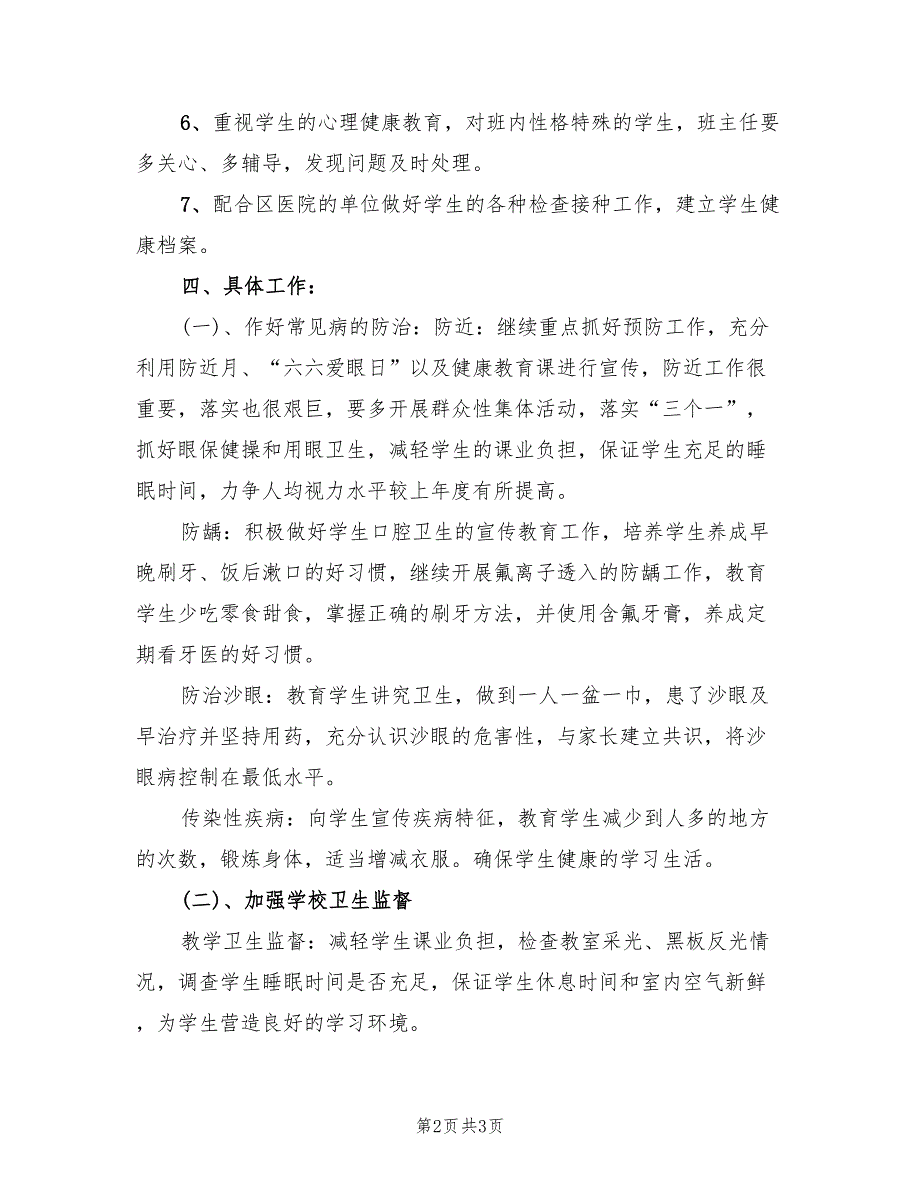 6、重视学生的心理健康教育，对班内性格特殊的学生，班主任要
多关心、多辅导，发现问题及时处理。
7、配合区医院的单位做好学生的各种检查接种工作，建立学生健
康档案。
四、具体工作：
(一)、作好常见病的防治：防近：继续重点抓好预防工作，充分
利用防近月、“六六爱眼日”以及健康教育课进行宣传，防近工作很
重要，落实也很艰巨，要多开展群众性集体活动，落实“三个一”，
抓好眼保健操和用眼卫生，减轻学生的课业负担，保证学生充足的睡
眠时间，力争人均视力水平较上年度有所提高。
防龋：积极做好学生口腔卫生的宣传教育工作，培养学生养成早
晚刷牙、饭后漱口的好习惯，继续开展氟离子透入的防龋工作，教育
学生少吃零食甜食，掌握正确的刷牙方法，并使用含氟牙膏，养成定
期看牙医的好习惯。
防治沙眼：教育学生讲究卫生，做到一人一盆一巾，患了沙眼及
早治疗并坚持用药，充分认识沙眼的危害性，与家长建立共识，将沙
眼病控制在最低水平。
传染性疾病：向学生宣传疾病特征，教育学生减少到人多的地方
的次数，锻炼身体，适当增减衣服。确保学生健康的学习生活。
(二)、加强学校卫生监督
教学卫生监督：减轻学生课业负担，检查教室采光、黑板反光情
况，调查学生睡眠时间是否充足，保证学生休息时间和室内空气新鲜
，为学生营造良好的学习环境。
第2页 共3页